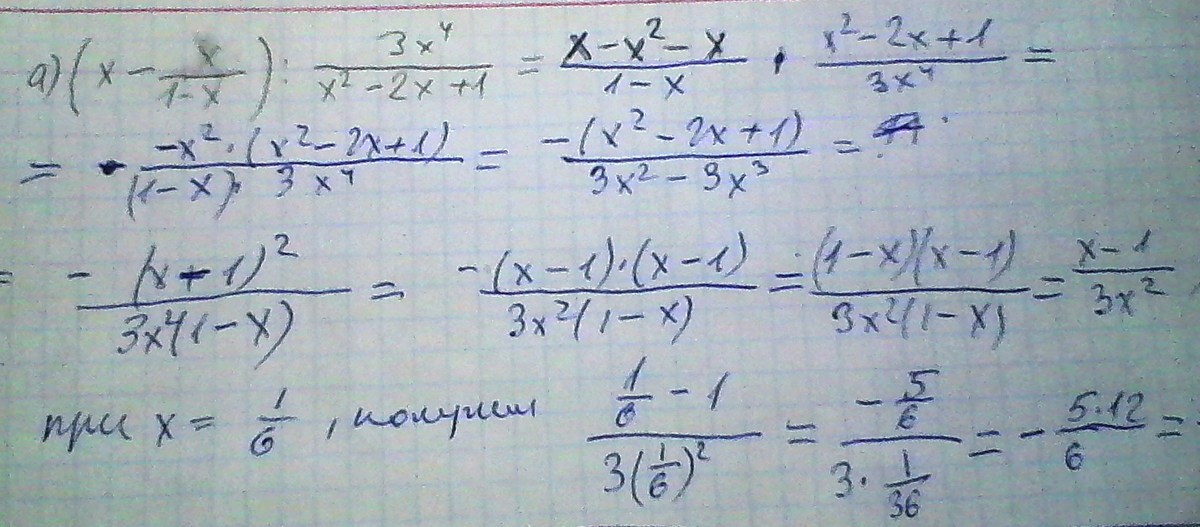 а) (x - x/(1-x)) : 3x⁴/(x² - 2x + 1) = (x - x² - x)/(1 - x) · (x² - 2x + 1)/(3x⁴) =
= (-x² · (x² - 2x + 1))/((1 - x) · 3x⁴) = (-(x² - 2x + 1))/(3x² - 3x³) =
= (-(x - 1)²)/(3x²(1 - x)) = (-(x - 1)·(x - 1))/(3x²(1 - x)) = ((1 - x)(x - 1))/(3x²(1 - x)) = (x - 1)/(3x²)
при x = 1/6, получим (1/6 - 1)/(3(1/6)²) = (-5/6)/(3 · 1/36) = - (5·12)/6 =